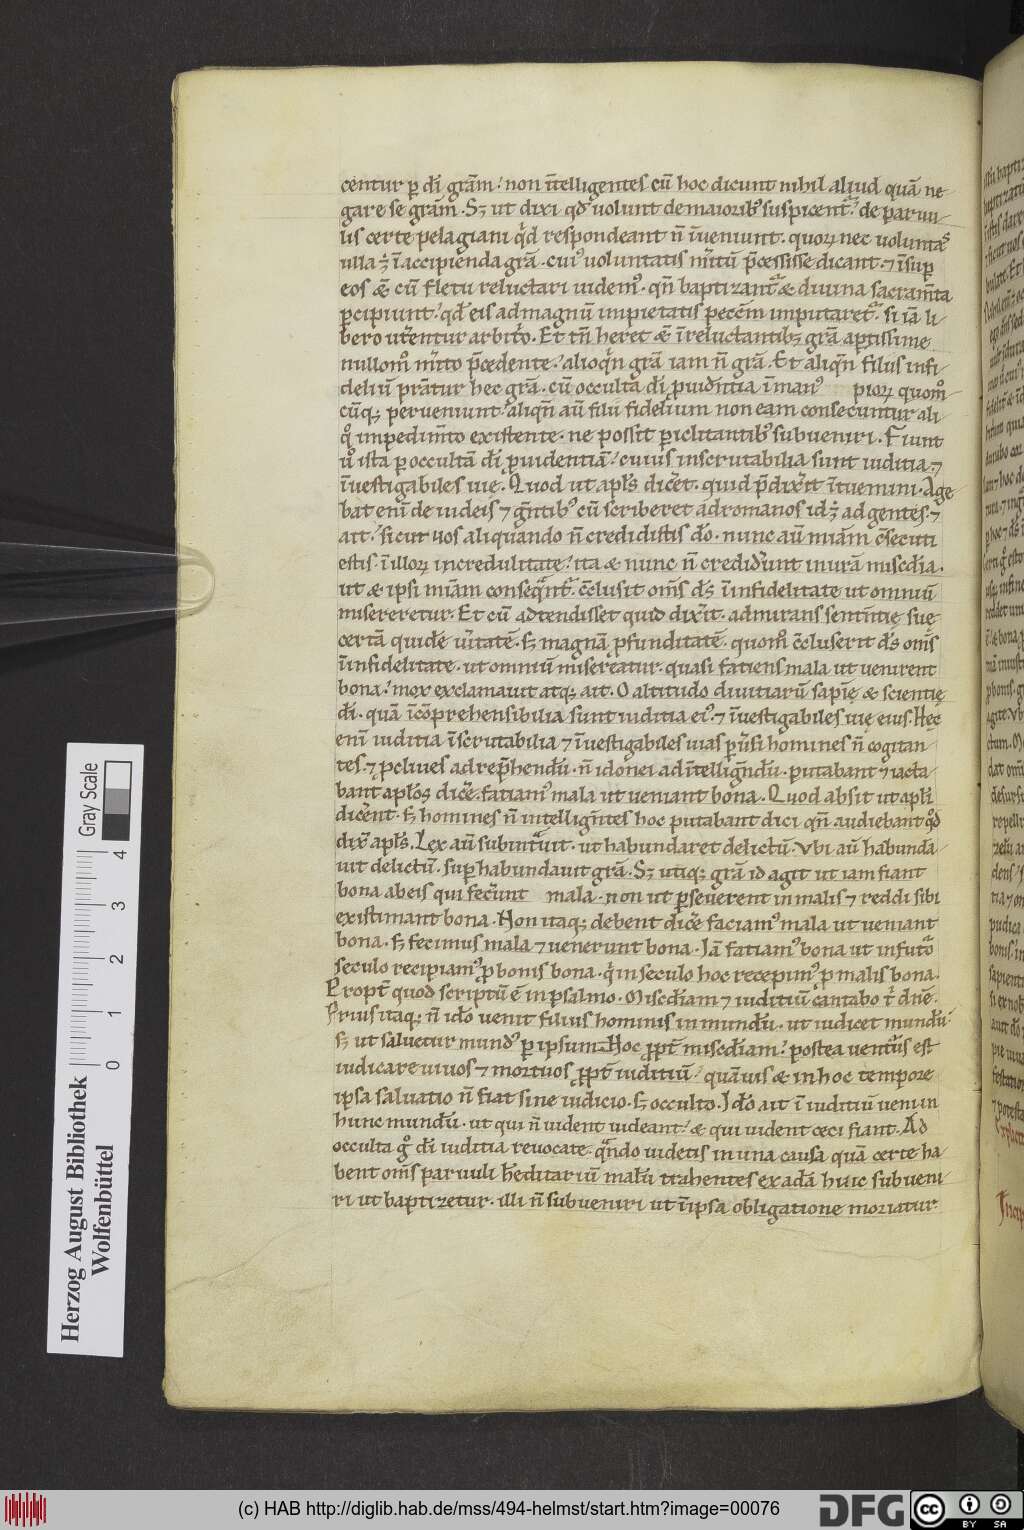 centur p di gram. non intelligentes cu hoc dicunt nihil aliud qua ne
gare se gram. Sz ut dixi qd uolunt de maiorib suspicentur. de paruu
lis certe pelagiani qd respondeant n inueniunt. quoru nec uoluntas
ulla e in accipienda gra. cui uoluntatis meritu pcessisse dicant. ⁊ insup
eos & cu fletu reluctari uidem. qn baptizantur & diuina sacramta
pcipiunt. qd eis ad magnu impietatis peccm imputaretur. si ia li
bero uterentur arbitrio. Et tn heret & in reluctantibz gra aptissime
nullom mito pcedente. alioqn gra iam n gra. Et aliqn filius infi
deliu pratur hec gra. cu occulta di puidntia in man pioru quom
cuqz perueniunt. aliqn au filii fidelium non eam consecuntur ali
q impedimto existente. ne possit piclitantib subueniri. Fiunt
u ista p occulta di puidentia. cuius inscrutabilia sunt iuditia. ⁊
inuestigabiles uie. Quod ut apls diceret. quid pdixerit intuemini. Age
bat eni de iudeis ⁊ gentib cu scriberet ad romanos id e ad gentes. ⁊
ait. sicut uos aliquando n credidistis do. nunc au miam csecuti
estis in illoru incredulitate. ita & nunc n crediderunt in uram miscdia.
ut & ipsi miam consequantur. cclusit oms ds in infidelitate ut omniu
misereretur. Et cu adtendisset quid dixerit. admirans sententie sue
certa quide ueritate. sz magna pfunditate. quom ccluserit ds oms
in infidelitate. ut omniu misereatur. quasi fatiens mala ut uenirent
bona. mox exclamauit atqz ait. O altitudo diuitiaru sapie & scientie
di. qua incoprehensibilia sunt iuditia ei. ⁊ inuestigabiles uie eius. Hec
eni iuditia inscrutabilia ⁊ inuestigabiles uias puersi homines n cogitan
tes. ⁊ pcliues ad reprehendu. n idonei ad intelligendu. putabant ⁊ iacta
bant aplos dice. fatiam mala ut ueniant bona. Quod absit ut apli
dicerent. sz homines n intelligentes hoc putabant dici qn audiebant qd
dixit apls. Lex au subintrauit. ut habundaret delictu. Vbi au habunda
uit delictu. suphabundauit gra. Sz utiqz gra id agit ut iam fiant
bona ab eis qui fecerunt mala. non ut pseuerent in malis ⁊ reddi sibi
existimant bona. Non itaqz debent dice faciam mala ut ueniant
bona. sz fecimus mala ⁊ uenerunt bona. Ia fatiam bona ut in futuro
seculo recipiam p bonis bona. q in seculo hoc recepim p malis bona.
Propt quod scriptu e in psalmo. Miscdiam ⁊ iuditiu cantabo t dne.
Prius itaqz n ido uenit filius hominis in mundu. ut iudicet mundu
sz ut saluetur mund p ipsum. Hoc ppt miscdiam. postea uenturus est
iudicare uiuos ⁊ mortuos ppt iuditiu. quauis & in hoc tempore
ipsa saluatio n fiat sine iudicio. sz occulto. Ido ait in iuditiu ueni in
hunc mundu. ut qui n uident uideant. & qui uident ceci fiant. Ad
occulta g di iuditia reuocate. quando uidetis in una causa qua certe ha
bent oms paruuli hereditariu malu trahentes ex ada huic subueni
ri ut baptizetur. illi n subueniri ut in ipsa obligatione moriatur.
Gray Scale
0 1 2 3 4
Herzog August Bibliothek
Wolfenbüttel
(c) HAB http://diglib.hab.de/mss/494-helmst/start.htm?image=00076
DFG
cc BY SA